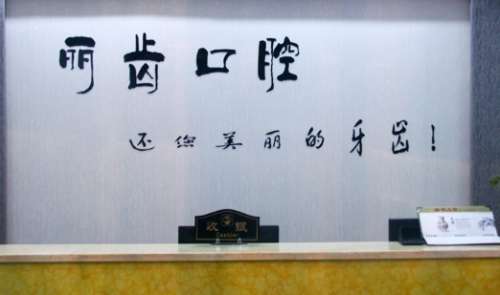 丽齿口腔
还您美丽的牙齿!
收银
Cashier